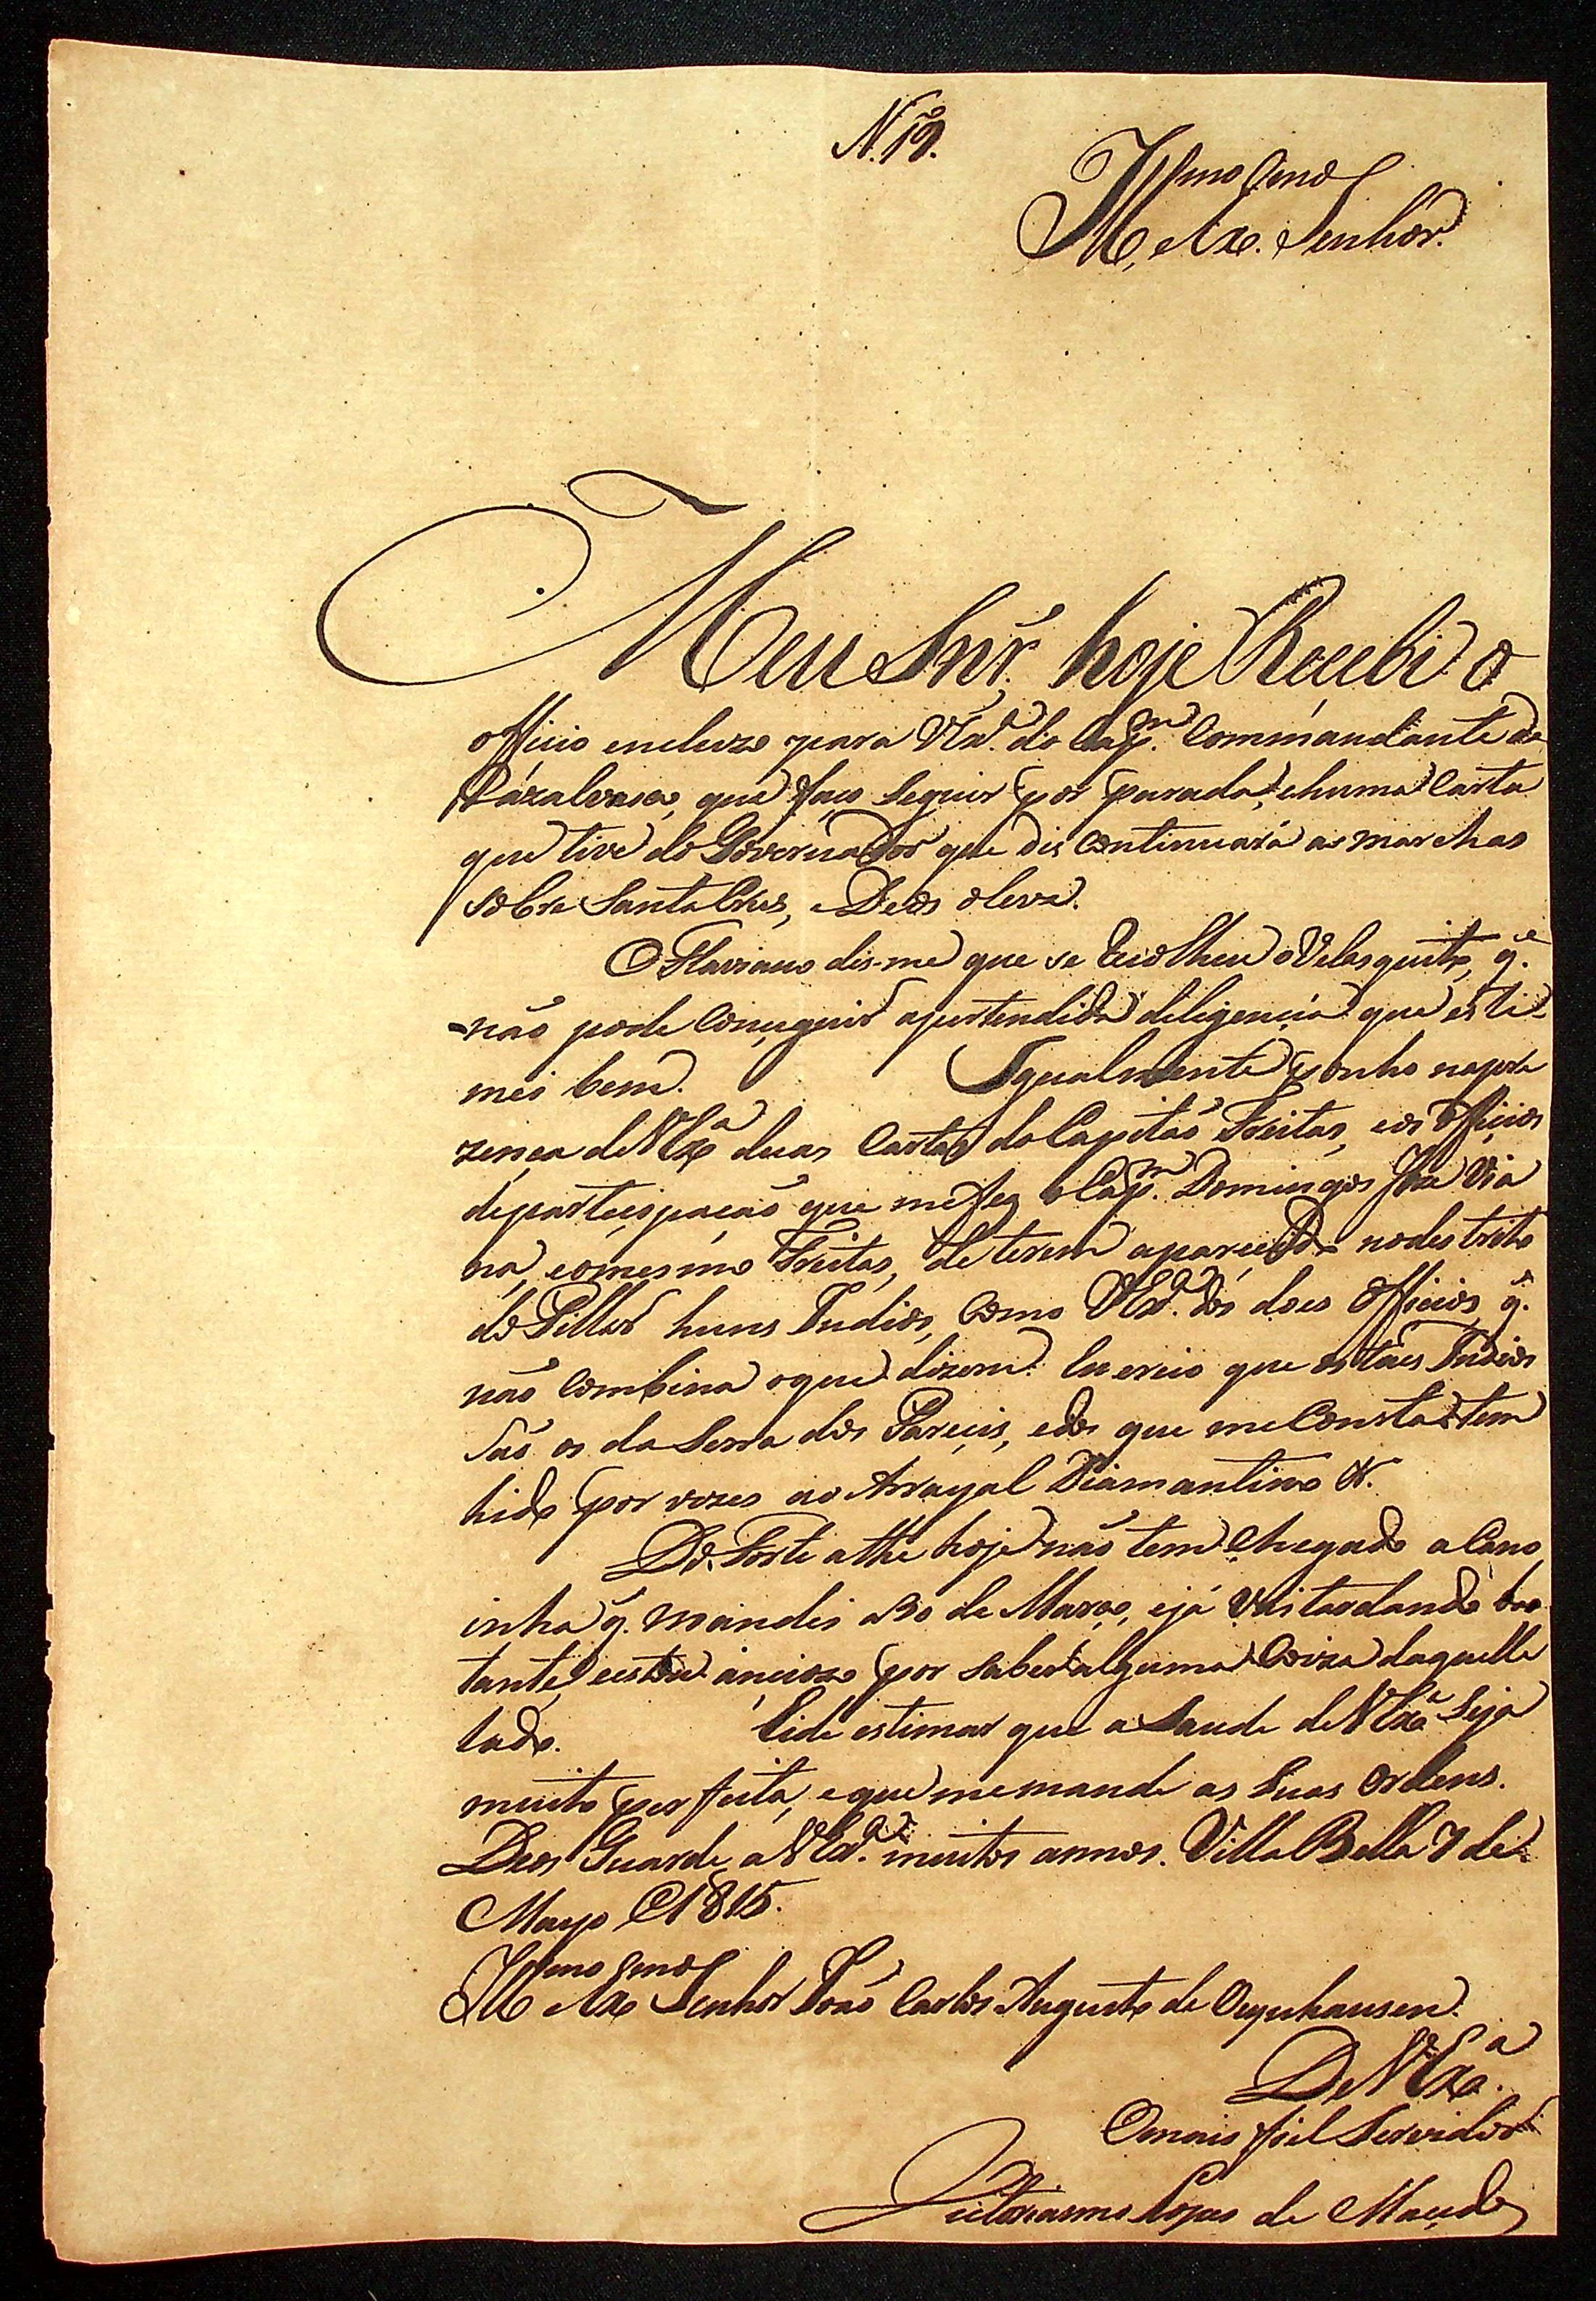 N. 19.
Ill.mo e Ex.mo Senhor.
Meu Snr. hoje Recebi o
officio incluzo para VEx.ª do Cap.m Commandante de
Cazalvasco, que faço seguir por parada, e huma Carta
que tive do Governador que dis continuará as marchas
sobre Santa Crus, e Deos o leve.
O Flaviano dis-me que se recolheu o Velasquito, q.e
não pode Conseguir a pertendida deligencia que esti-
mei bem. Igualmente ponho na pre
zença de VEx.ª duas Cartas do Capitão Freitas, e os officios
de parteçipação que me fez o Cap.m Domingos Joze Via
na, e o mesmo Freitas, de terem aparecido no destrito
do Pillar huns Indios, Como VEx.ª dos dous Officios, q.e
não Combina o que dizem. Eu creio que os taes Indios
São os da Serra dos Pareçis, e dos que me Consta tem
hido por vezes ao Arrayal Diamantino &.
Do Forte athe hoje não tem Chegado a Cano
inha q. mandei a 30 de Março, e já vai tardando bas
tante, e estou ancioso por saber alguma Coiza daquelle
lado. Eide estimar que a Saude de VEx.ª Seja
muito perfeita, e que me mande as Suas Ordens.
Deos Guarde a VEx.ª muitos annos. Villa Bella 7 de
Mayo 1815.
Ill.mo e Ex.mo Senhor João Carlos Augusto de Oeynhausen.
De VEx.ª
O mais fiel Servidor
Victoriano Lopes de Macedo